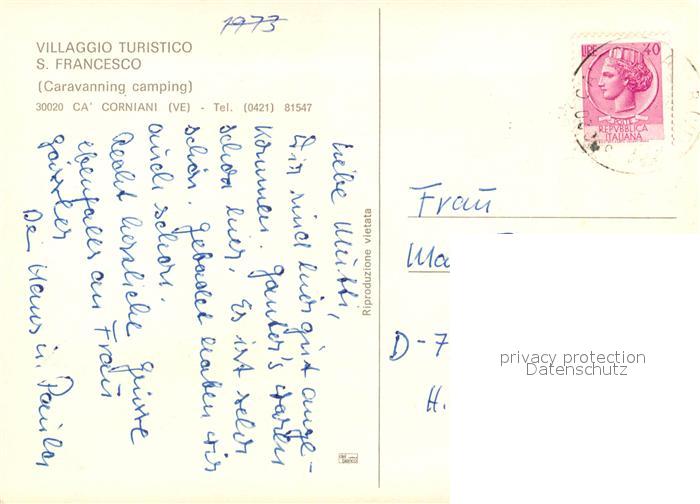 1973
VILLAGGIO TURISTICO
S. FRANCESCO
(Caravanning camping)
30020 CA' CORNIANI (VE) - Tel. (0421) 81547
Liebe Mutti,
Wir sind hier gut ange-
kommen. Ganter's warten
schon hier. Es ist sehr
schön. Gebadet haben wir
auch schon.
Recht herzliche Grüsse
ebenfalls an Frau
Dein Hans u.
Riproduzione vietata
LIRE 40
POSTE
REPVBBLICA
ITALIANA
Frau
Ma
D-7
H.
privacy protection
Datenschutz